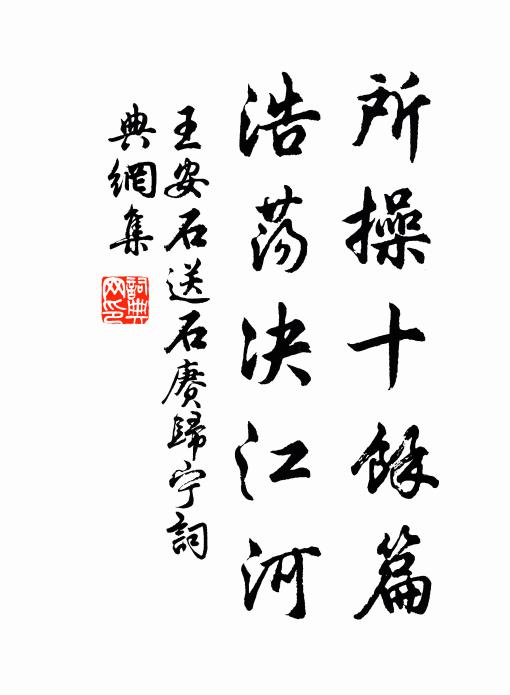 所操十餘篇
浩荡决江河
王安石送石賡歸宁詞
典網集
詞典网印